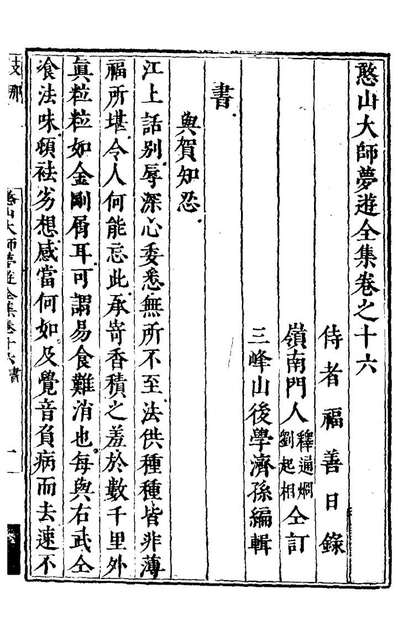 憨山大師夢遊全集卷之十六
侍者福善日錄
嶺南門人釋通炯劉起相仝訂
三峰山後學濟孫編輯
書
與賀知忍
江上話別辱深心委悉無所不至法供種種皆非薄
福所堪令人何能忘此承寄香積之羞於數千里外
眞粒粒如金剛屑耳可謂易食難消也每與右武仝
飡法味頓袪劣想感當何如及覺音負病而去速不
支那
憨山大師夢遊全集卷十六書
一